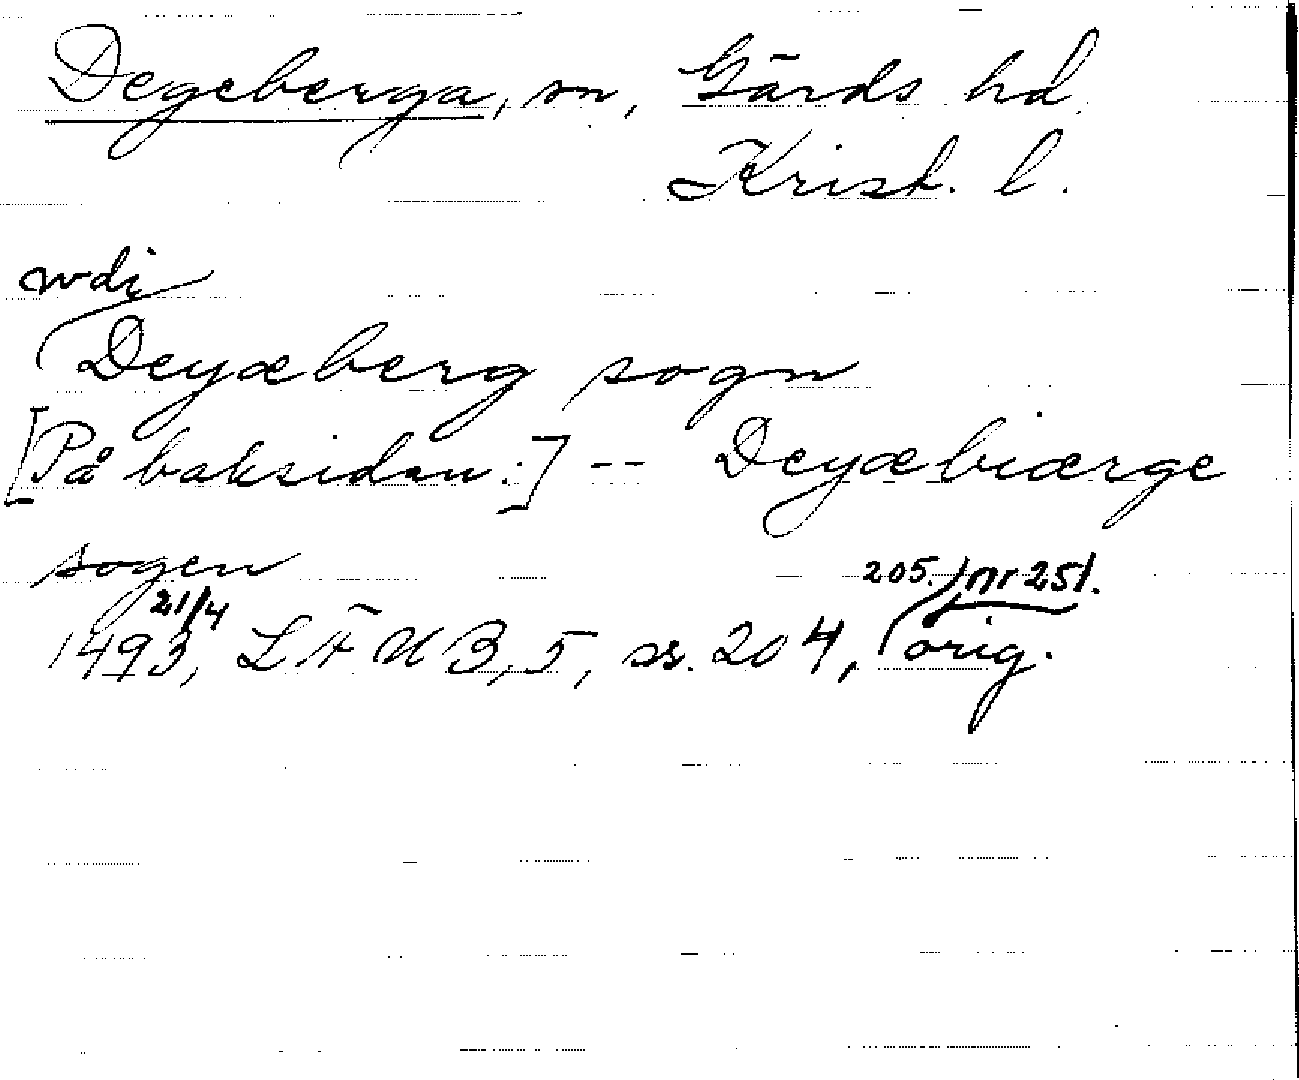 Degeberga, sn, Gärds hd.
Krist. l.
wdi
Deyæberg sogn
[På baksidan:] -- Deyæbiærge
sogen
21/4 205. nr 251.
1493, LÄUB, 5, ss. 204, orig.